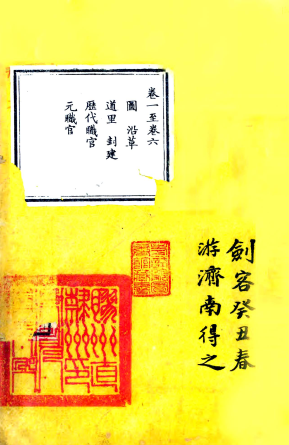 卷一至卷六
圖 沿革
道里 封建
歷代職官
元職官
劍客癸丑春
游濟南得之